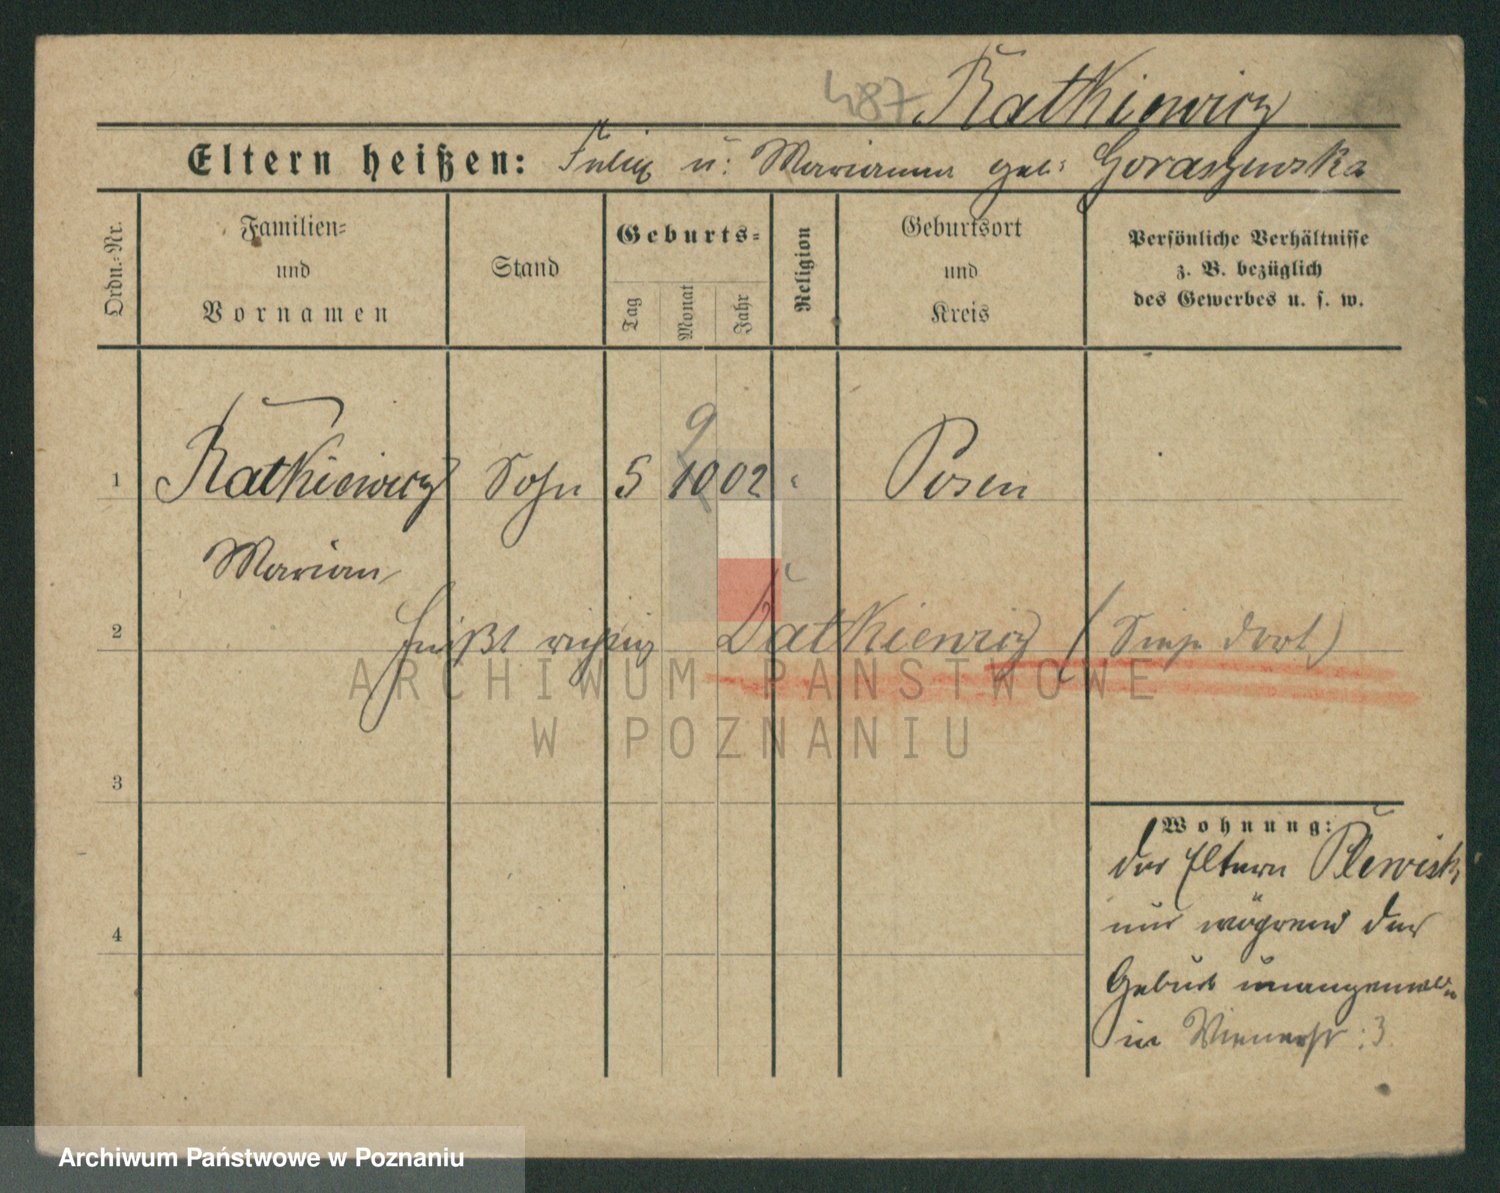 487 Ratkiewicz
Eltern heißen: Felix u: Marianna geb: Goraszewska
Ordn.-Nr.
Familien-
und
Vornamen
Stand
Geburts-
Tag
Monat
Jahr
Religion
Geburtsort
und
Kreis
Persönliche Verhältnisse
z. B. bezüglich
des Gewerbes u. s. w.
9
1 Ratkiewicz Sohn 5 10 02 Posen
Marian
2 heißt richtig Datkiewicz (Siehe dort)
ARCHIWUM PAŃSTWOWE
W POZNANIU
3
Wohnung:
der Eltern Plewisk,
nur während der
4
Geburt unangemeld.
in Wienerstr: 3
Archiwum Państwowe w Poznaniu